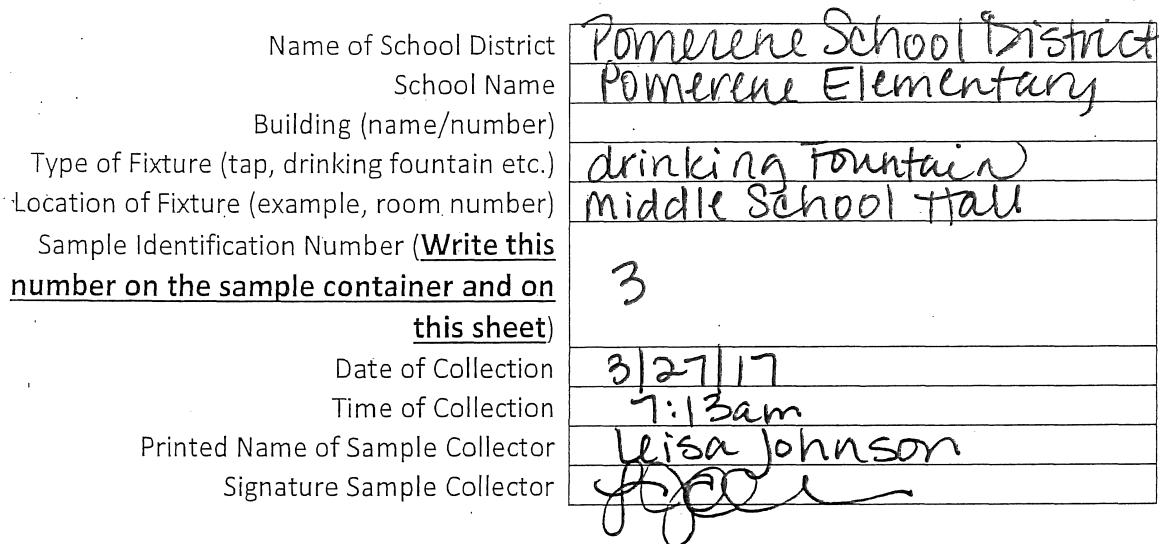 Name of School District Pomerene School District
School Name Pomerene Elementary
Building (name/number)
Type of Fixture (tap, drinking fountain etc.) drinking Fountain
Location of Fixture (example, room number) Middle School Hall
Sample Identification Number (Write this
number on the sample container and on 3
this sheet)
Date of Collection 3/27/17
Time of Collection 7:13am
Printed Name of Sample Collector Leisa Johnson
Signature Sample Collector